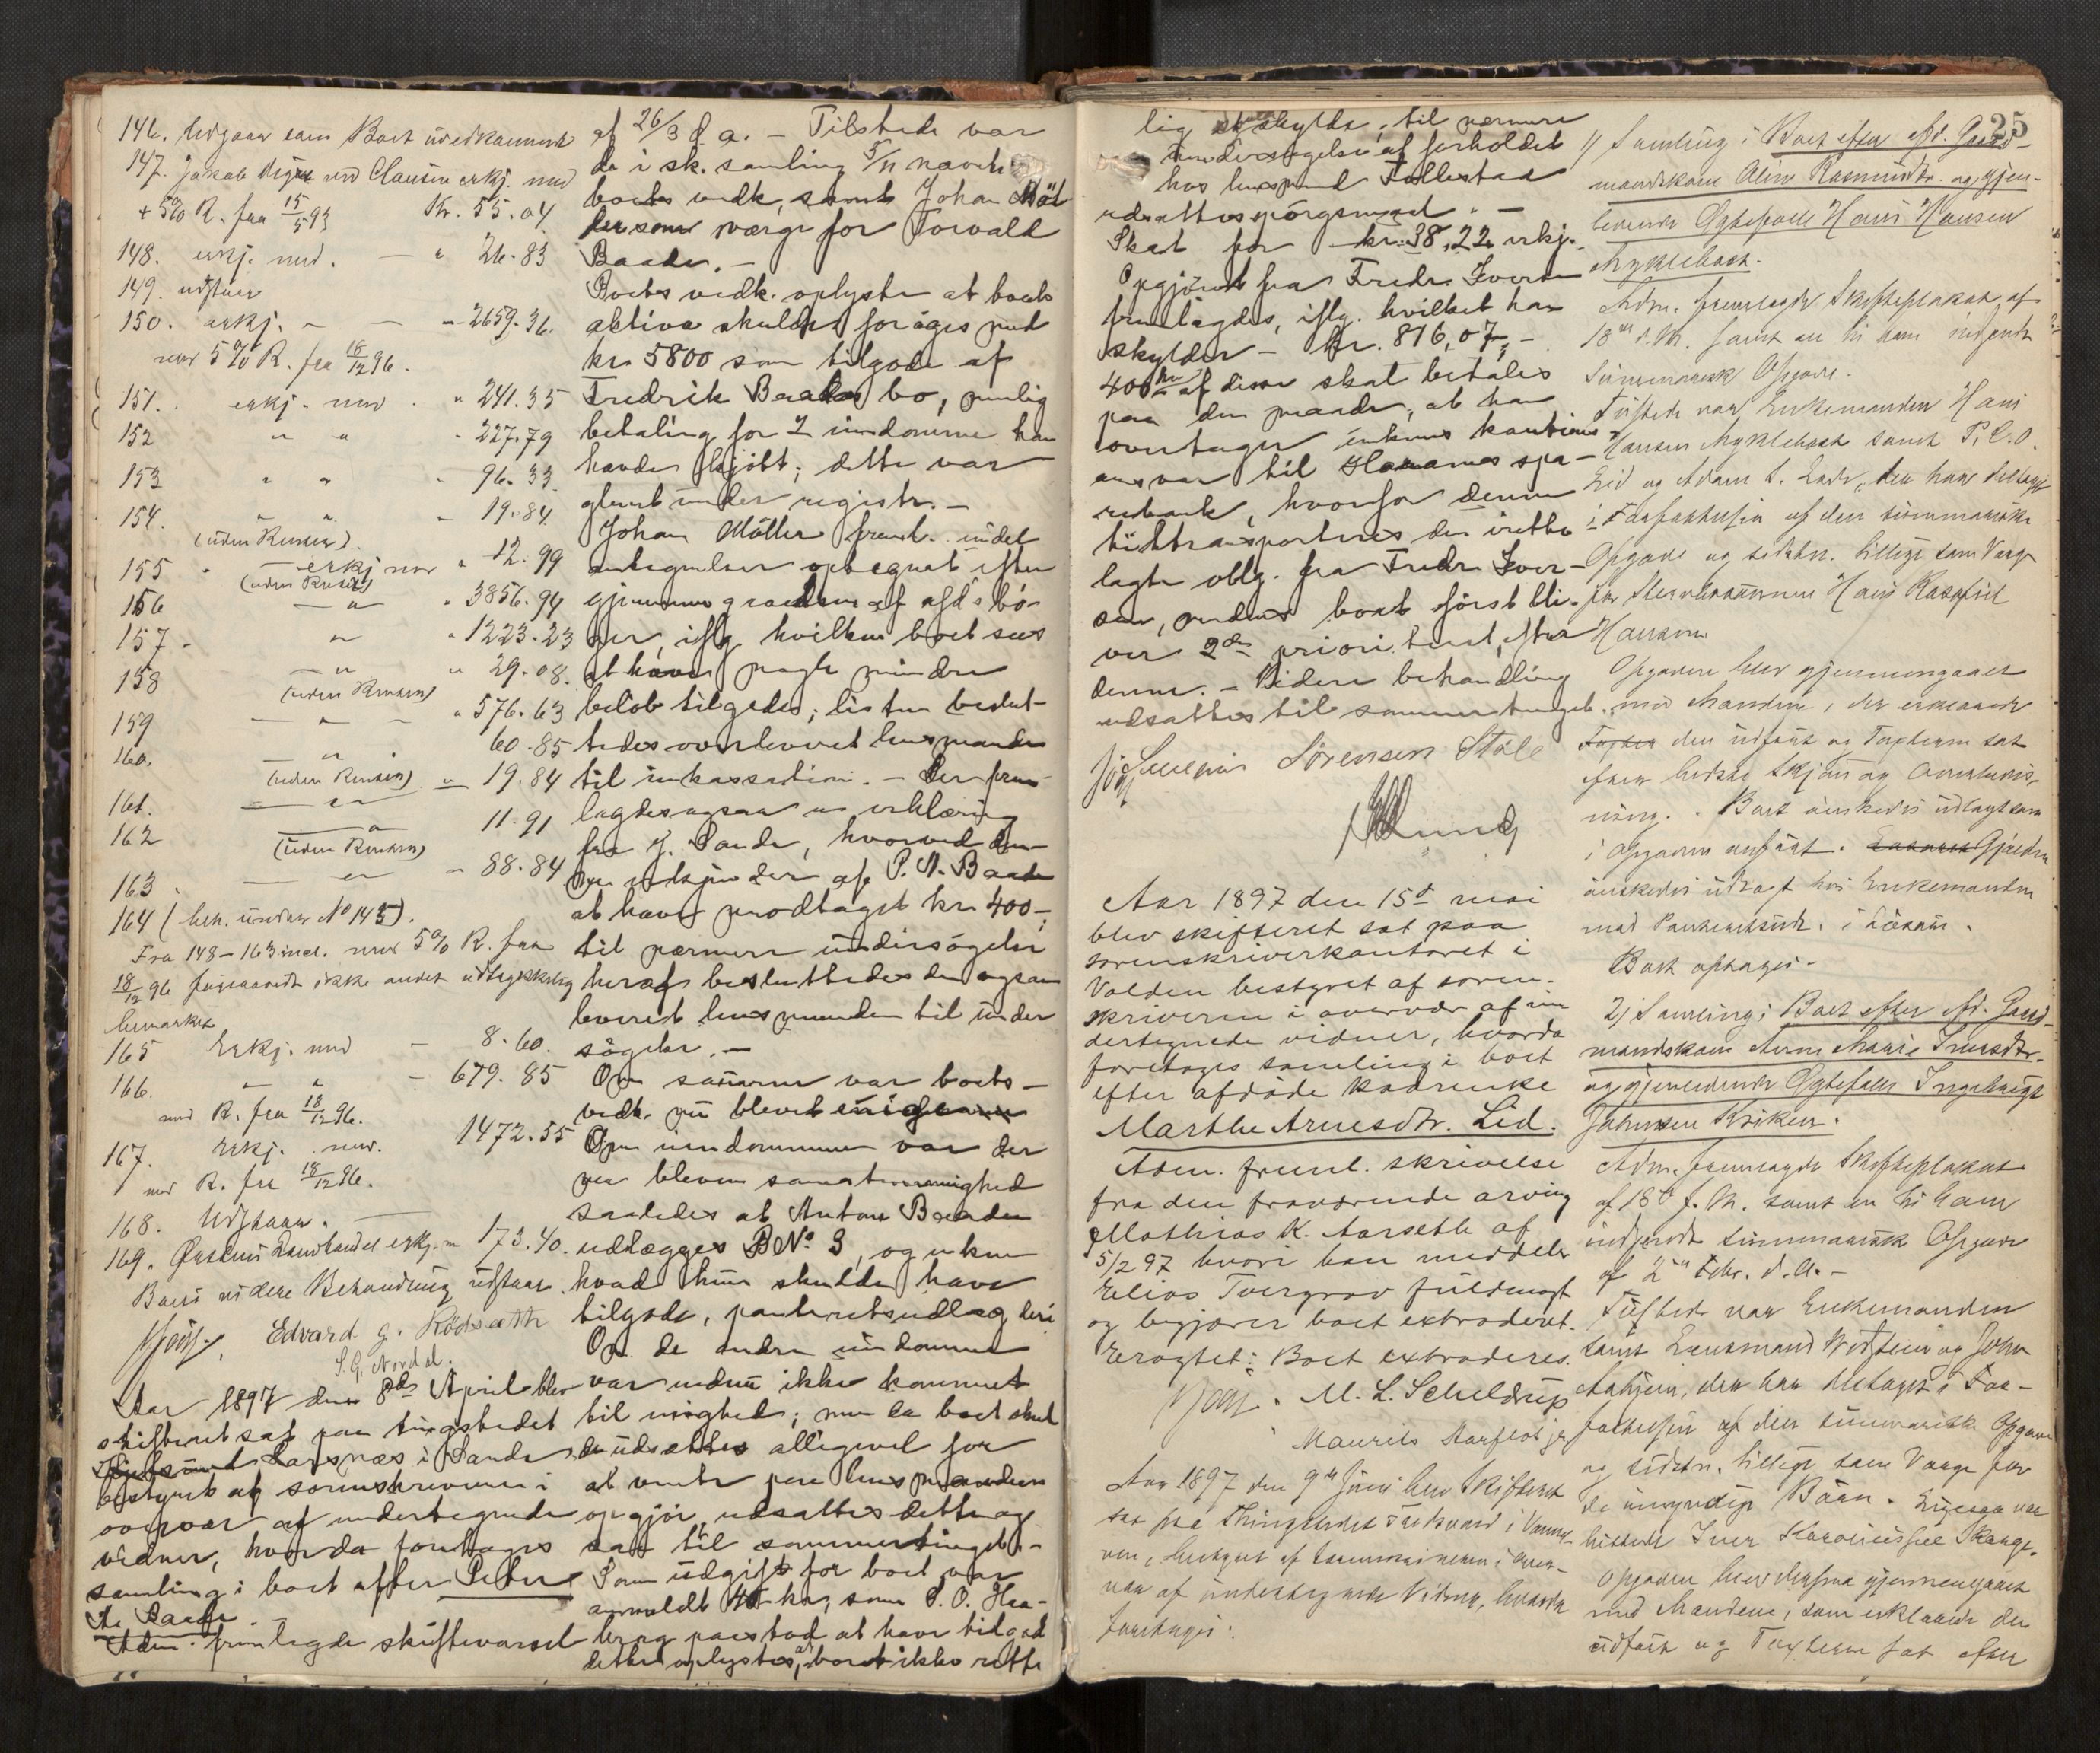 146. Udgaar som Boet uvedkommende
147. Jakob Digre ved Clausen erkj. med
+ 5% R. fra 15/5 93 Kr. 55.04
148. erkj. med. — " 26.83
149. udstaar
150. erkj. — — " 2659.36.
med 5% R. fra 18/12 96.
151. erkj. med " 241.35
152 " " " 227.79
153 " " " 96.33
154. " " " 19.84
(uden Renter)
155 erkj med " 12.99
(uden Renter)
156 — " — " 3856.94
157 " " 1223.23
158 — " — " 29.08.
(uden Renter)
159 — " — " 576.63
160. — " — 60.85
(uden Renter)
161. — " — " 19.84
162 — " — 11.91
(uden Renter)
163 — " — " 88.84
164 (beh. under No 145).
Fra 148–163 incl. med 5% R. fra
18/12 96 forsaavidt ikke andet udtrykkelig
bemærket
165 Erkj. med — 8.60.
166. " " — 679.85
med R. fra 18/12 96.
167. Erkj. med. 1472.55
med R. fra 18/12 96.
168. Udstaar.
169. Landhandel erkj. m 173.40.
Boets videre Behandling udstaar
Edvard G. Rödsæth
S. G. Nordal.
Aar 1897 den 8de April blev
skifteret sat paa tingstedet
Larsnæs i Sande
bestyret af sorenskriveren i
overvær af undertegnede
vidner, hvorda foretages
samling i boet efter Peter
A. Baade.
Adm. fremlagde skiftevarsel
af 26/3 d. a. — Tilstede var
de i sk. samling 5/11 nævnte
boets vedk, samt Johan Möl
ler som værge for Torvald
Baade. —
Boets vedk. oplyste at boets
aktiva skulde foröges med
kr. 5800 som tilgode af
Fredrik Baades bo, nemlig
betaling for 2 eiendomme han
havde kjöbt; dette var
glemt under registr. —
Johan Möller freml. endel
antegnelser optegnet efter
gjennemgaaelsen af afd's bö-
ger, iflg. hvilken boet sees
at have nogle mindre
belöb tilgode; listen beslut-
tedes overleveret lensmanden
til inkassation. — Der frem-
lagdes ogsaa en erklæring
fra J. Sande, hvorved den-
ne af P. A. Baade
at have modtaget kr. 400 —;
til nærmere undersögelse
heraf besluttedes den ogsaa
leveret lensmanden til under
sögelse. —
Om sagerne var boets
vedk. nu blevet enige
Om eiendommen var der
nu bleven samstemmighed
saaledes at Anton Baade
udlægges BNo. 3, og enken
hvad hun skulde have
tilgode, panteretsudlæg deri
Om de andre eiendomme
var endnu ikke kommet
til enighed; men da boet skul
de udsættes alligevel for
at vente paa lensmandens
opgjör, udsattes dette og
saa til sommertinget. —
Som udgift for boet var
anmeldt 45 kr, som P. O. Haa-
berg paastod at have tilgode
dette oplystes, at boet ikke rette
lig skylde; til nærmere
undersögelse af forholdet
hos lensmand Tallestad
udsattes spörgsmaal. —
Skat for — kr. 38,22 erkj.
Opgjöret fra Fredr. Iversen
fremlagdes, iflg. hvilket han
skylder — kr. 816,07. —
400 kr. af disse skal betales
paa den maade, at han
overtager enkens kautions-
ansvar til Haramss spa-
rebank, hvorfor denne
tiltransporteres den irette
lagte oblg. fra Fredr. Iver-
sen, medens boet först bli-
ver 2den prioritent, efter
denne. — Videre behandling
udsattes til sommertinget.
Sörensen Stöle
Aar 1897 den 15de mai
blev skifteret sat paa
sorenskriverkontoret i
Volden bestyret af soren-
skriveren i overvær af un
dertegnede vidner, hvorda
foretages samling i boet
efter afdöde kaarenke
Marthe Arnesdtr. Lid.
Adm. freml. skrivelse
fra den fraværende arving
Mathias K. Aarseth af
5/2 97 hvori han meddeler
Elias Tvergrov fuldmagt
og begjærer boet extraderet.
Eragtet: Boet extraderes.
M. L. Scheldrup
Maurits Aarflot jr
Aar 1897 den 9de Juni blev Skifteret
sat paa Thingstedet i Vannel-
ven, bestyret af Sorenskriveren i Over-
vær af undertegnede Vidner, hvorda
foretages:
25
1) Samling i Boet efter afd. Gaard-
mandskone Oline Rasmusdtr. og gjen-
levende Ægtefælle Hans Hansen
Myklebost.
Adm. fremlagde Skifteplakat af
18de f. M. samt en til ham indsendt
summarisk Opgave.
Tilstede var Enkemanden Hans
Hansen Myklebost samt P. C. O.
Eid og Adam S. der har deltaget
i Forfattelsen af den summariske
Opgave og sidstn. tillige som Værge
for Hans
Hansen
Opgaven blev gjennemgaaet
med Manden, der erklærede
den udført og Taxterne sat
efter bedste Skjøn og Overbevis-
ning. Boet ønskedes udlagt som
i Opgaven anført. Gjælden
ønskedes udlagt hos Enkemanden
med Panteretsudl. i Løsøre.
Boet optages.
2) Samling i Boet efter afd. Gaard-
mandskone Anne Marie Iversdtr.
og gjenlevende Ægtefælle Ingebrigt
Johnsen Kriken.
Adm. fremlagde Skifteplakat
af 18de f. M. samt en til ham
indsendt summarisk Opgave
af 2den Febr. d. A. —
Tilstede var Enkemanden
samt Lensmand og John
Aahjem, der har deltaget i For-
fattelsen af den summariske Opgave
og sidstn. tillige som Værge for
de umyndige Børn. Ligesaa var
tilstede Iver
Opgaven blev gjennemgaaet
med Mandene, som erklærede den
udført og Taxterne sat efter